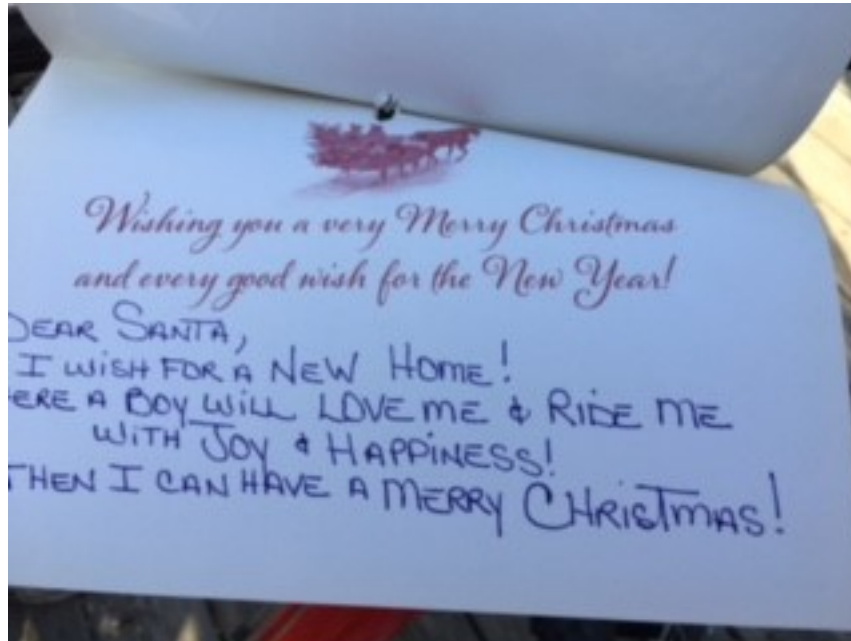 Wishing you a very Merry Christmas
and every good wish for the New Year!
DEAR SANTA,
I WISH FOR A NEW HOME!
ERE A BOY WILL LOVE ME & RIDE ME
WITH JOY & HAPPINESS!
THEN I CAN HAVE A MERRY CHRISTMAS!